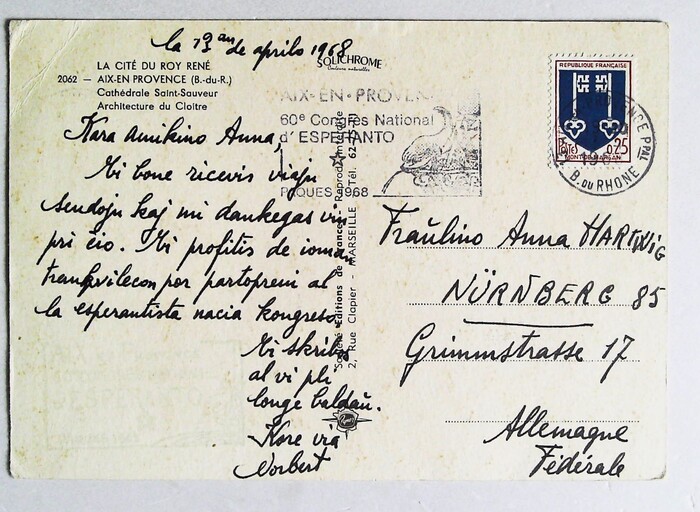 la 13an de aprilo 1968
SOLICHROME
Couleurs naturelles
LA CITÉ DU ROY RENÉ
2062 — AIX-EN PROVENCE (B.-du-R.)
Cathédrale Saint-Sauveur
Architecture du Cloître
Kara amikino Anna,
Mi bone ricevis viajn
sendojn kaj mi dankegas vin
pri ĉio. Mi profitis de ioman
trankvilecon por partopreni al
la esperantista nacia kongreso.
Mi skribos
al vi pli
longe baldaŭ.
Kore via
Norbert
Société Editions de France - Reprod. interdite
2, Rue Clapier - MARSEILLE - Tél. 62
AIX-EN-PROVEN
60e Congrès National
d'ESPERANTO
PAQUES 1968
REPUBLIQUE FRANÇAISE
POSTES 0,25
MONT-DE-MARSAN
PROVENCE PPAL
B. DU RHONE
Fraŭlino Anna HARTWIG
NÜRNBERG 85
Grimmstrasse 17
Allemagne
Fédérale